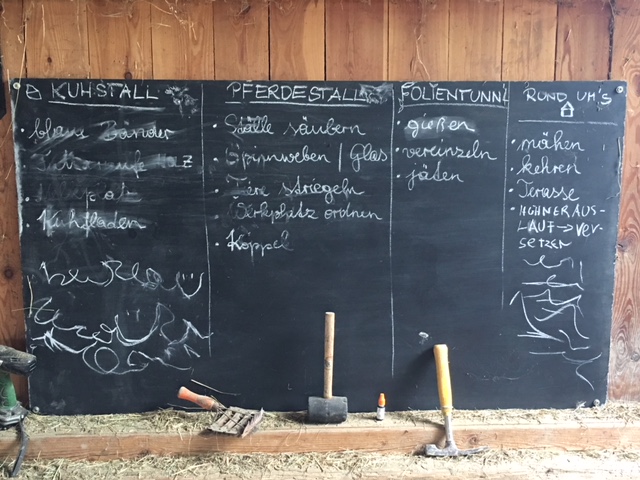 KUHSTALL
• blaue Bänder
• Kuhfladen
PFERDESTALL
• Ställe säubern
• Spinnweben / Glas
• Tiere striegeln
• Werkplatz ordnen
• Koppel
FOLIENTUNNL
• gießen
• vereinzeln
• jäten
RUND UM'S
• mähen
• kehren
• Terasse
• HÜHNERAUS-
LAUF → VER-
SETZEN